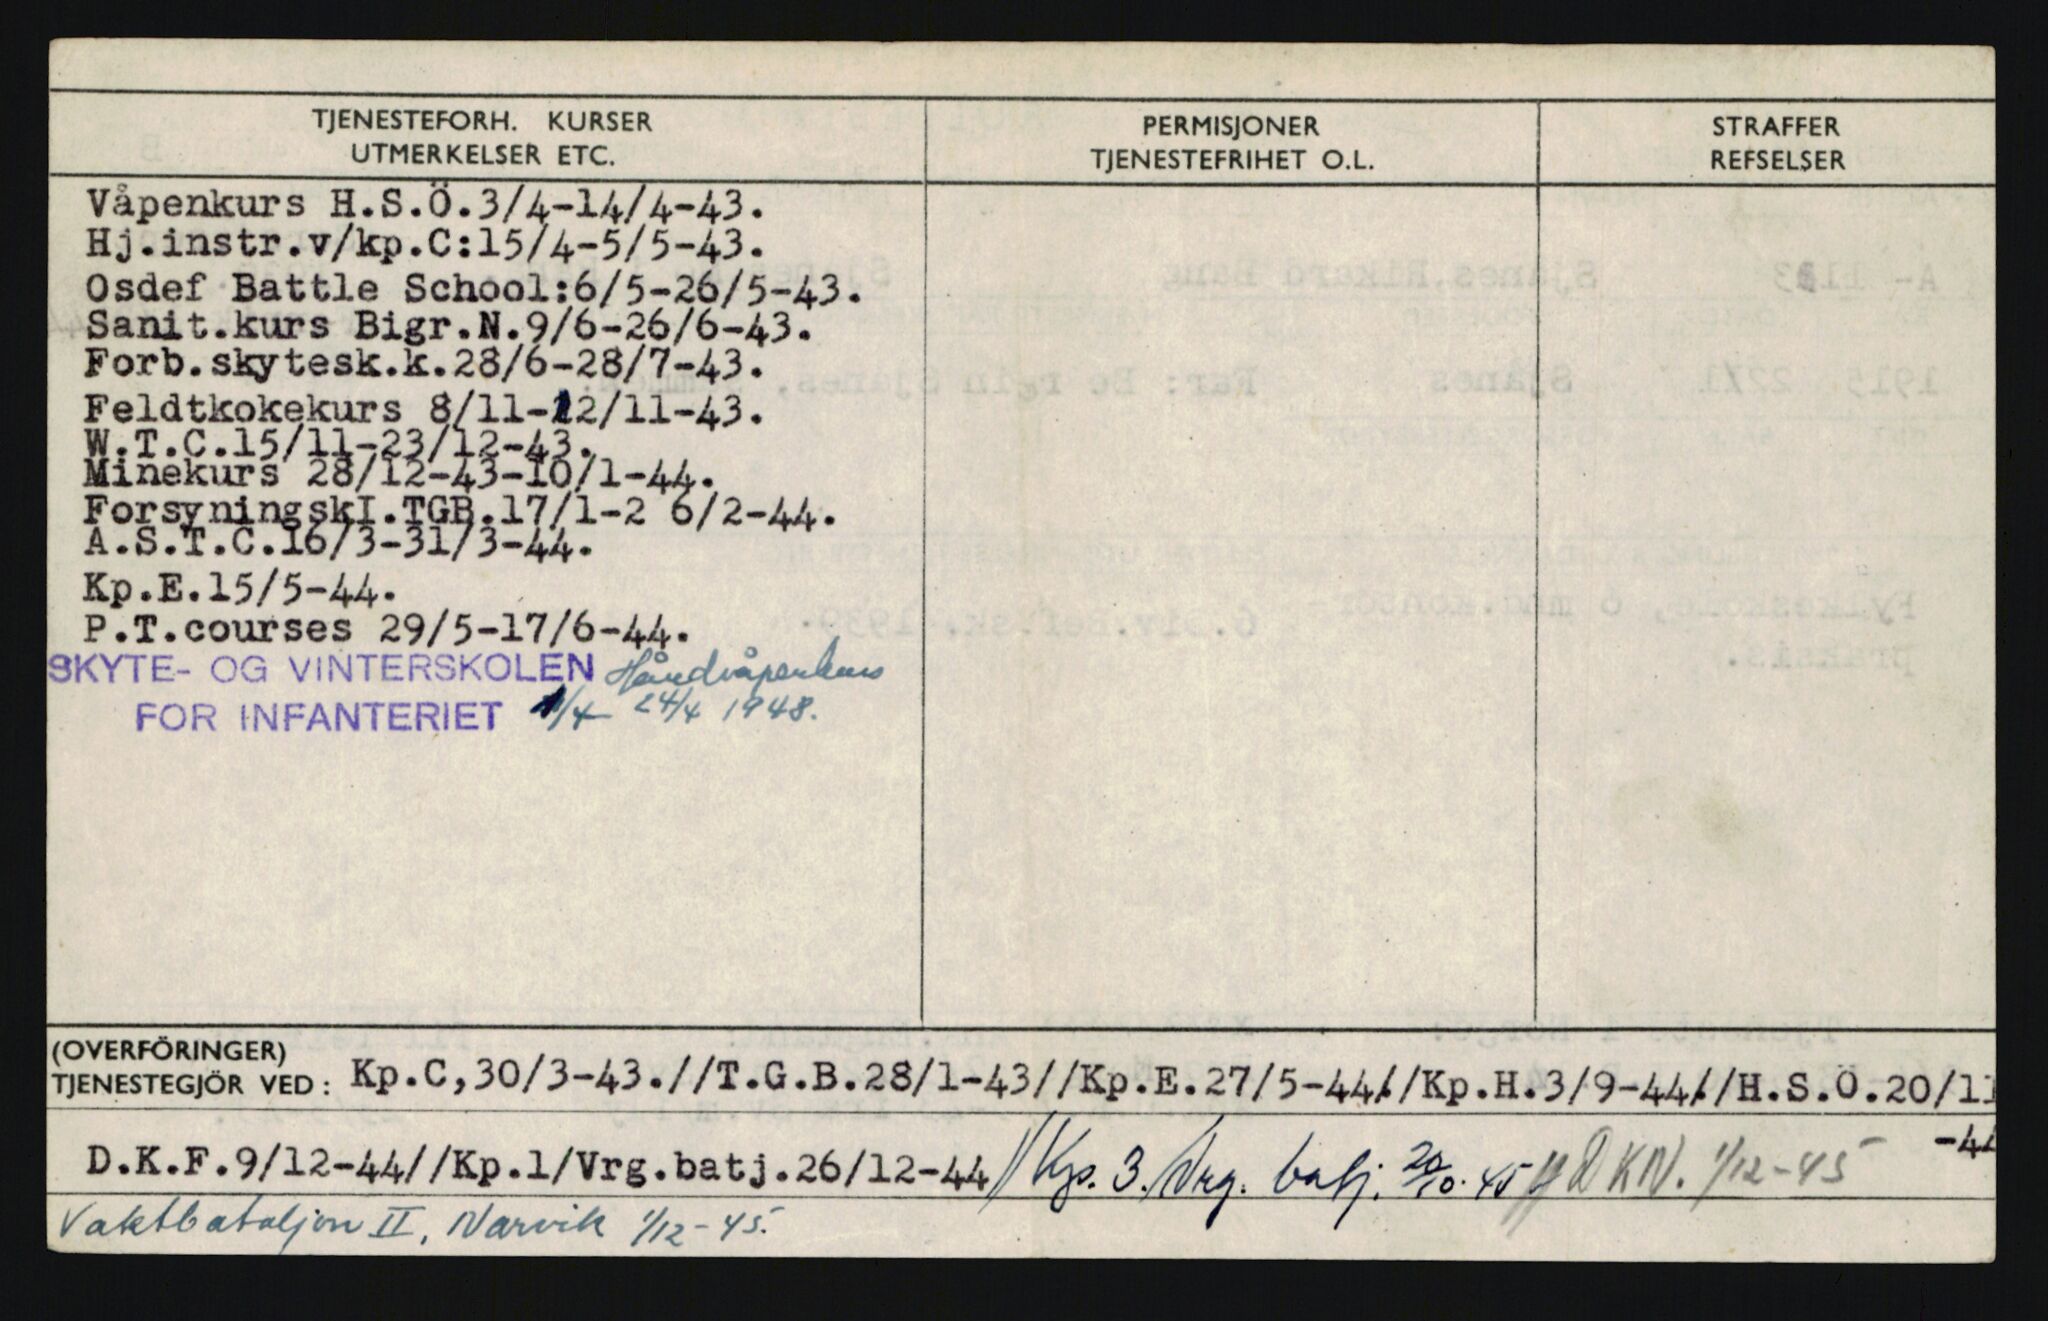 TJENESTEFORH. KURSER
UTMERKELSER ETC.
PERMISJONER
TJENESTEFRIHET O.L.
STRAFFER
REFSELSER
Våpenkurs H.S.Ö.3/4-14/4-43.
Hj.instr.v/kp.C:15/4-5/5-43.
Osdef Battle School:6/5-26/5-43.
Sanit.kurs Bigr.N.9/6-26/6-43.
Forb.skytesk.k.28/6-28/7-43.
Feldtkokekurs 8/11-12/11-43.
W.T.C.15/11-23/12-43.
Minekurs 28/12-43-10/1-44.
ForsyningskI.TGB.17/1-2 6/2-44.
A.S.T.C.16/3-31/3-44.
Kp.E.15/5-44.
P.T.courses 29/5-17/6-44.
SKYTE- OG VINTERSKOLEN Håndvåpenkurs
FOR INFANTERIET 1/4- 24/4 1948.
(OVERFÖRINGER)
TJENESTEGJÖR VED: Kp.C,30/3-43.//T.G.B.28/1-43//Kp.E.27/5-44.//Kp.H.3/9-44.//H.S.Ö.20/11
-44
D.K.F.9/12-44//Kp.1/Vrg.batj.26/12-44//Kp. 3./Vrg. batj. 20/10.45 // DKN. 1/12-45
Vaktbataljon II, Narvik 1/12-45.